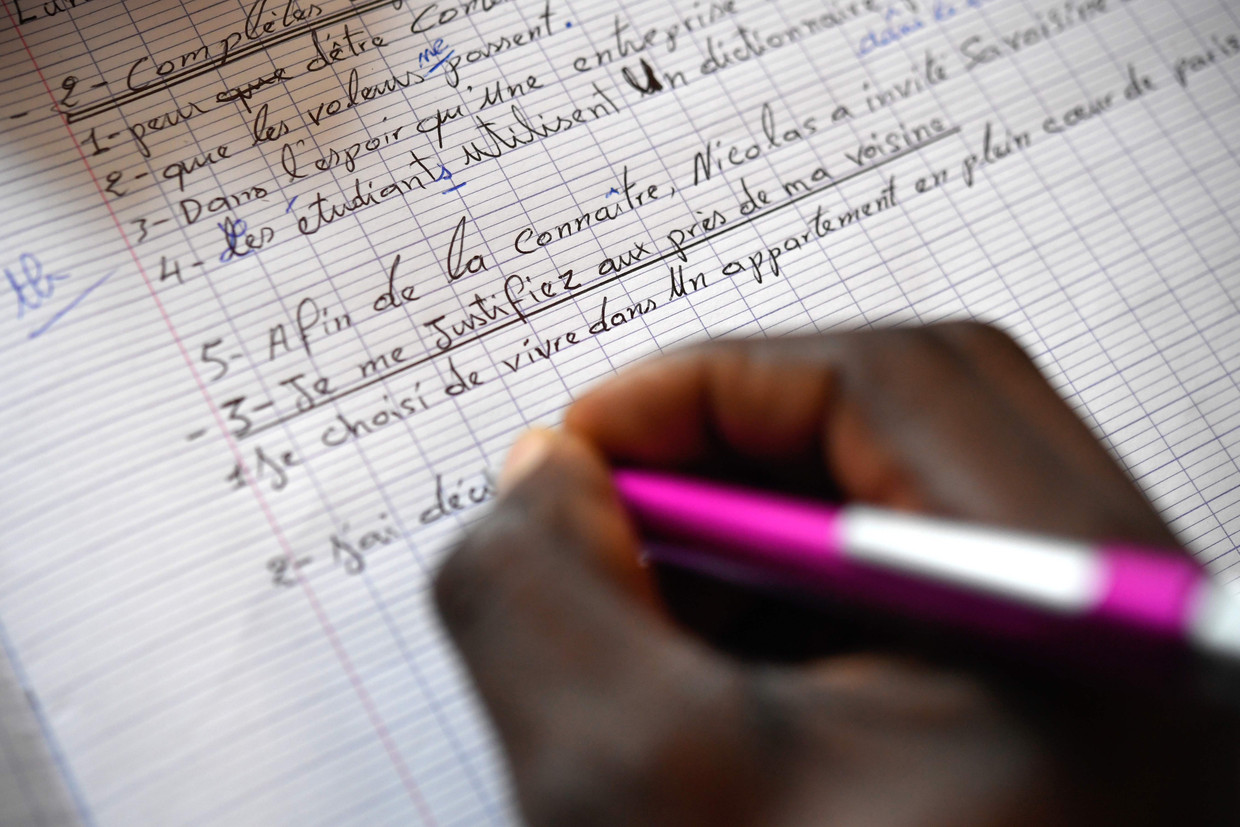 2- Complétes
1- peur que d'être Con
2- que les voleurs me passent.
3- Dans l'espoir qu'Une entreprise
4- des étudiants utilisent Un dictionnaire
tb
5- Afin de la Connaître, Nicolas a invité Sa voisine
- 3- Je me Justifiez aux près de ma voisine
1 Je choisi de vivre dans Un appartement en plein cœur de paris
2- J'ai déci